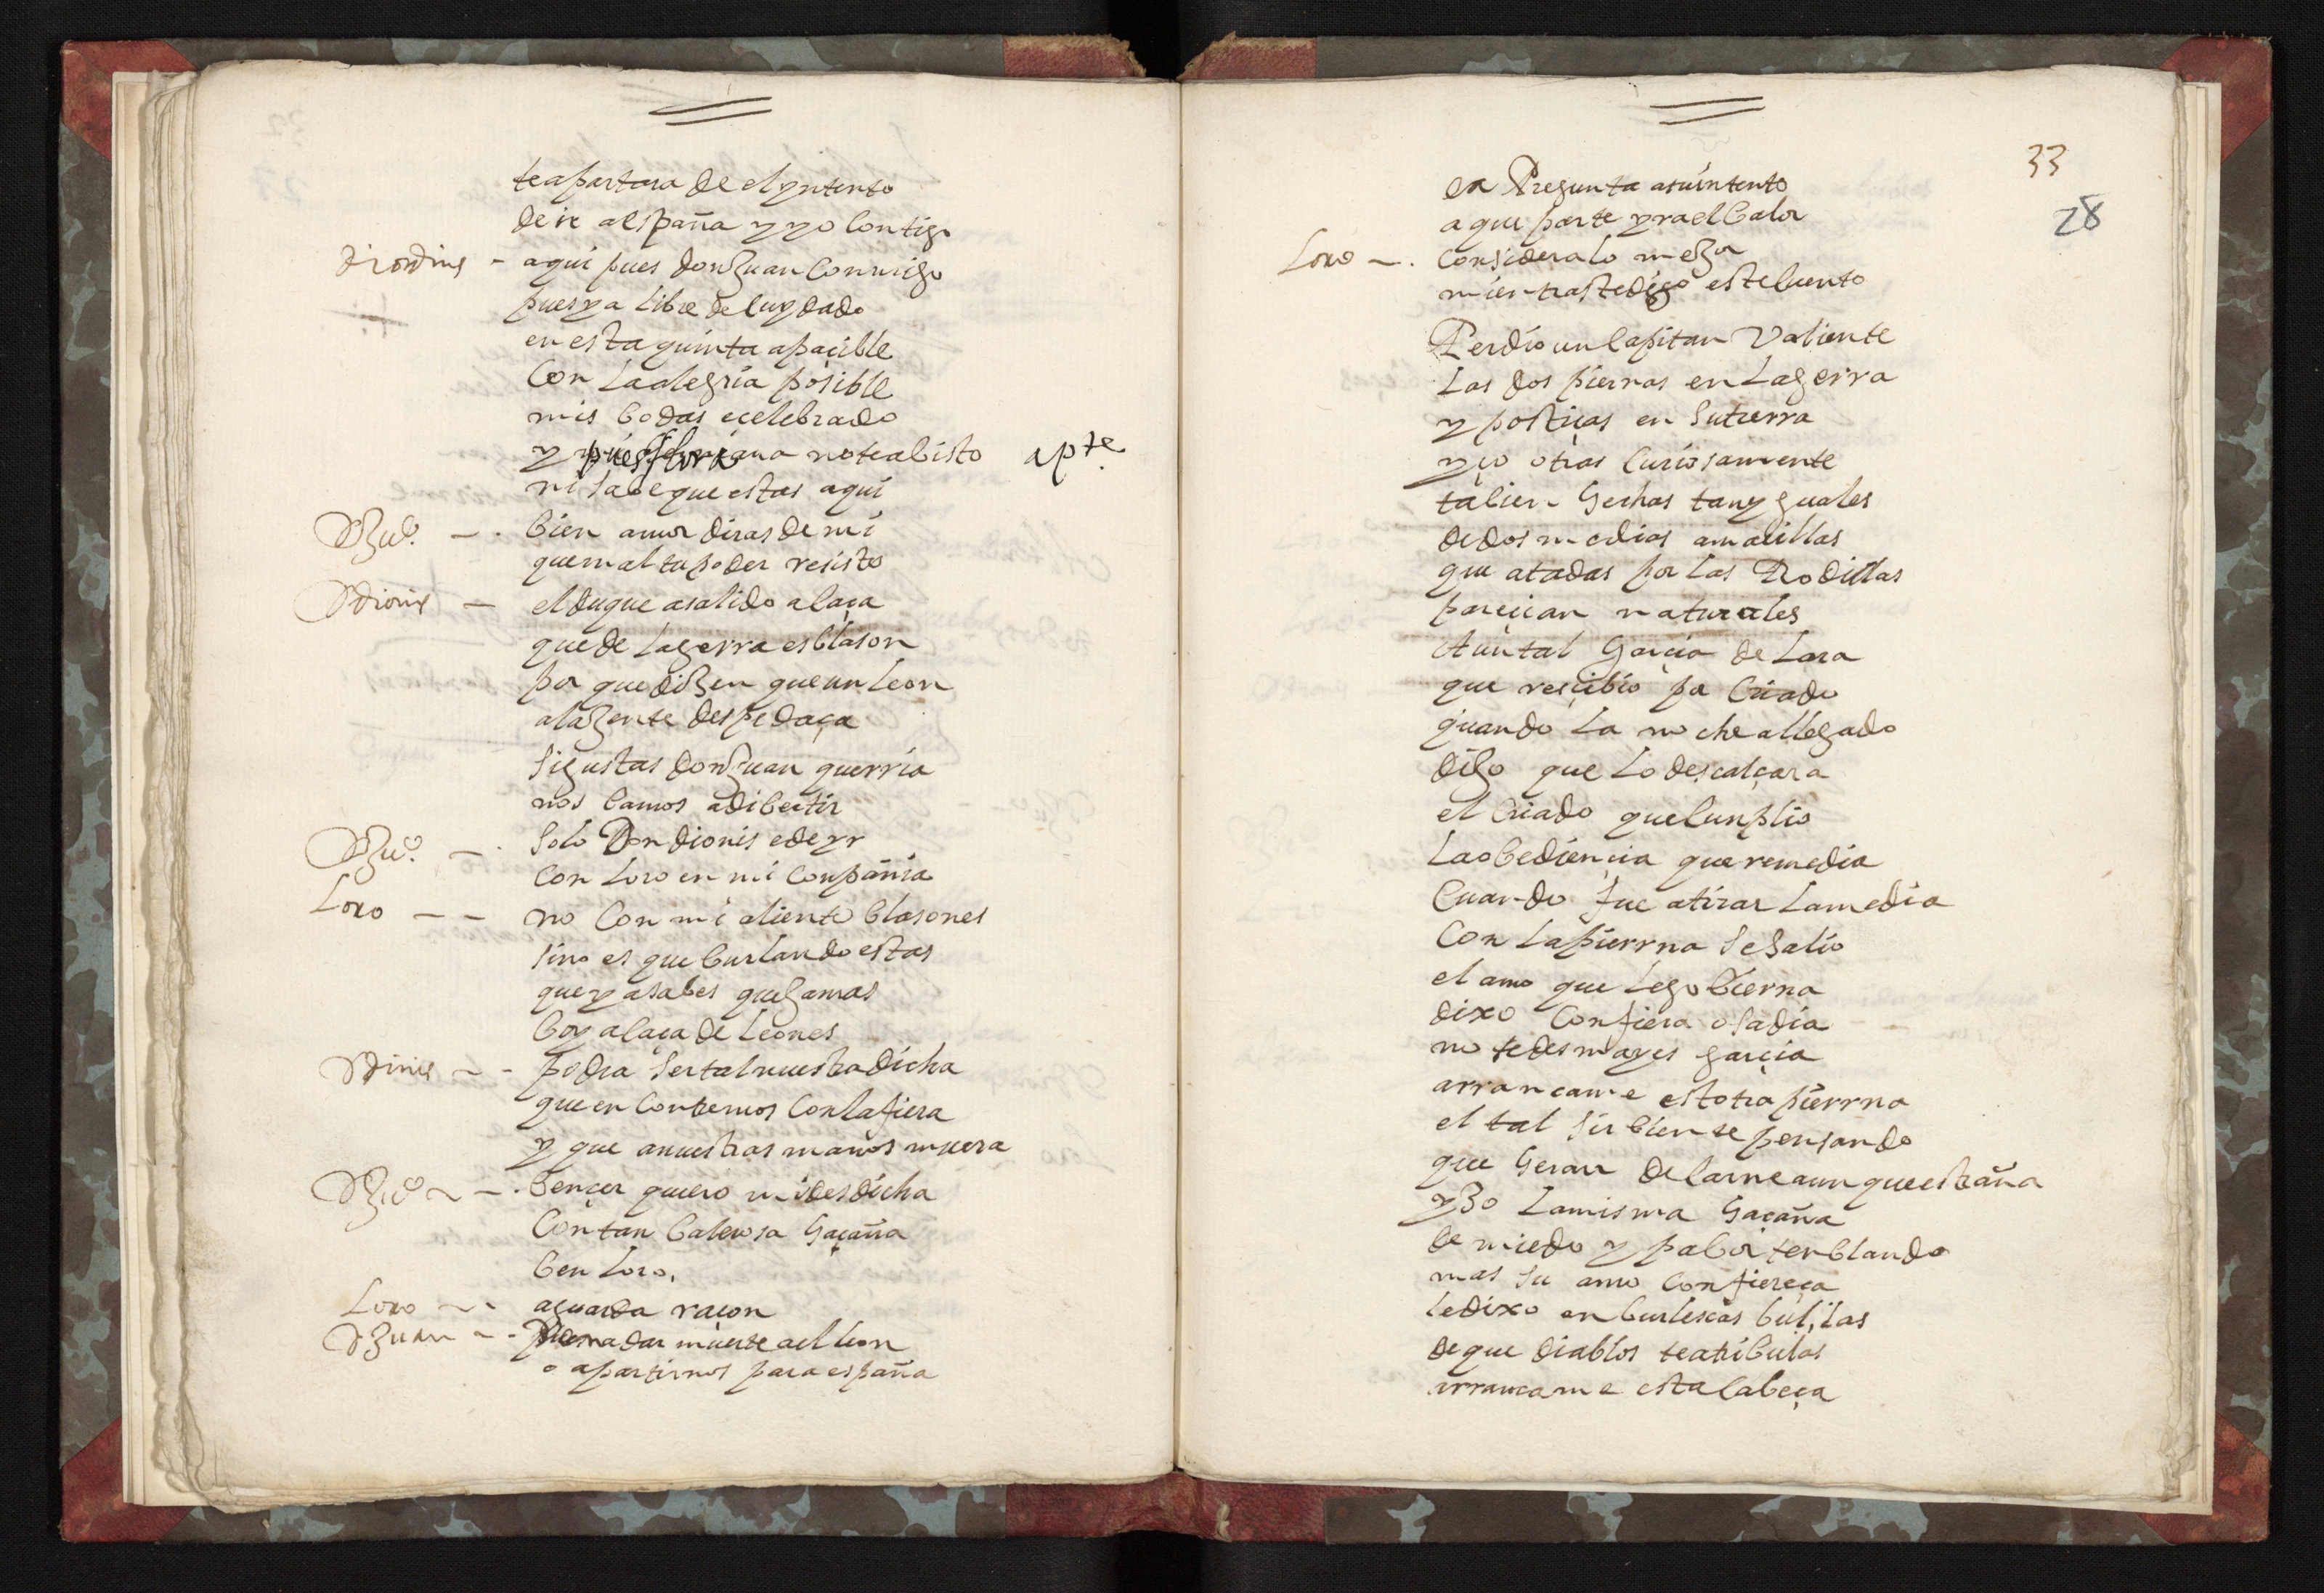 te apartara de el yntento
de ir a españa y yo contigo
di ordinis - aqui pues don Juan conmigo
pues ya libre de cuydado
en esta quinta apaçible
con la alegria posible
mis bodas e celebrado
y pues no te a bisto apte
ni sabe que estas aqui
DJuº — . bien amor diras de mi
que mal tu poder resisto
Ddionis — el duque a salido a caça
que de la gerra es blason
por que dizen que un leon
a la jente despedaça
si gustas don Juan querria
nos bamos a dibertir
DJuº. — . solo Don dionis e de yr
con loro en mi conpañia
Loro — — no con mi aliento blasones
sino es que burlando estas
que ya sabes que jamas
boy a caça de leones
Ddinis — - podra ser tal nuestra dicha
que encontremos con la fiera
y que a nuestras manos muera
DJuº ~ — . bençer quiero mi desdicha
con tan balerosa haçaña
ben loro,
Loro ~ - aguarda raçon
DJuan ~ - para dar muerte a el leon
o a partirnos para españa
33
28
ea Pregunta a tu intento
a que parte yra el balor
Loro — . considera lo mejor
mientras te digo este cuento
Perdio un capitan Valiente
las dos piernas en la gerra
y postiças en su tierra
yço otras curiosamente
tabien hechas tan yguales
de dos medias amarillas
que atadas por las Rodillas
pareçian naturales
A un tal Garçia de Lara
que resçibio por criado
quando la noche a llegado
dijo que lo descalçara
el criado que cunplio
la obediençia que remedia
cuando fue a tirar la media
con la pierrna se salio
el amo que le gobierna
dixo con fiera osadia
no te desmayes garçia
arrancame estotra pierrna
el tal sirbiente pensando
que heran de carne aunque estraña
yzo la misma haçaña
de miedo y pabor tenblando
mas su amo con fiereça
le dixo en burlescas bulas
de que diablos te atribulas
arrancame esta cabeça